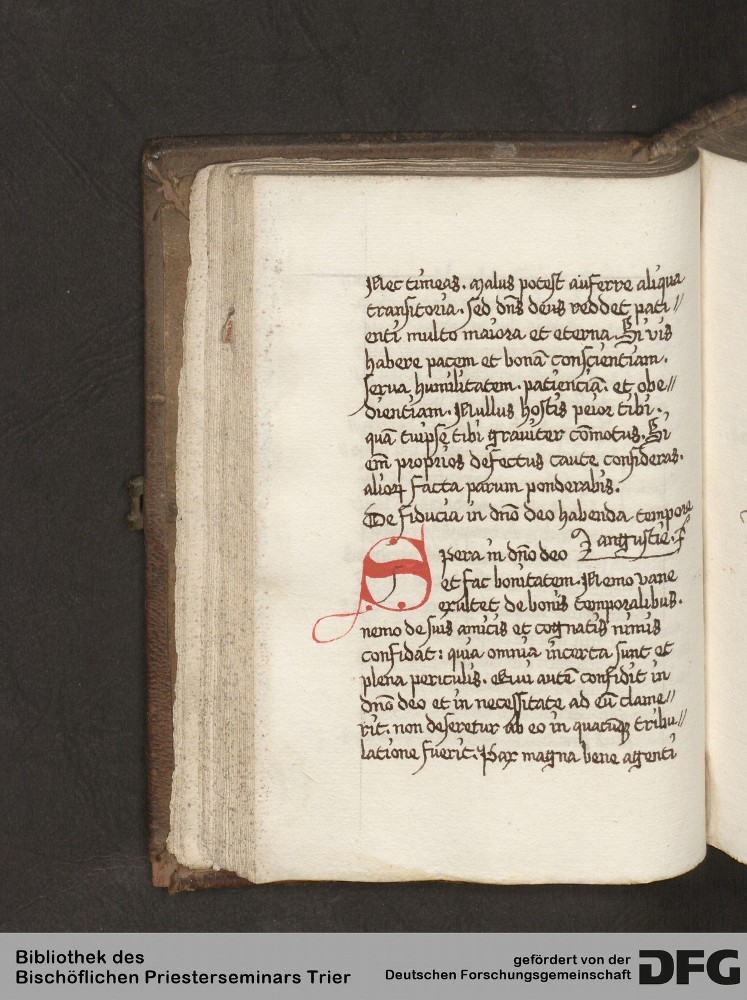 Nec timeas. Malus potest auferre aliqua
transitoria. sed dn̄s deus reddet pati //
enti multo maiora et eterna. Si vis
habere pacem et bonā conscientiam.
serua humilitatem. patienciā. et obe //
dientiam. Nullus hostis peior tibi.
quā tuipse tibi grauiter cōmotus. Si
em̄ proprios defectus caute consideras.
alioꝝ facta parum ponderabis.
De fiducia in dn̄o deo habenda tempore
angustie.
Spera in dn̄o deo
et fac bonitatem. Nemo vane
exaltet de bonis temporalibus.
nemo de suis amicis et cognatis nimis
confidat: quia omnia incerta sunt et
plena periculis. Qui autē confidit in
dn̄o deo et in necessitate ad eū clame //
rit. non deseretur ab eo in quacūqꝫ tribu //
latione fuerit. Pax magna bene agenti
Bibliothek des
Bischöflichen Priesterseminars Trier
gefördert von der
Deutschen Forschungsgemeinschaft
DFG